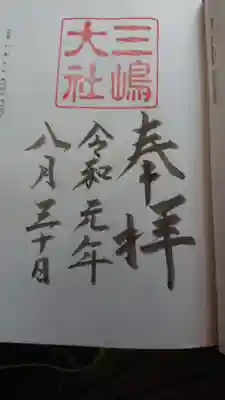 三嶋
大社
奉拝
令和元年
八月三十日